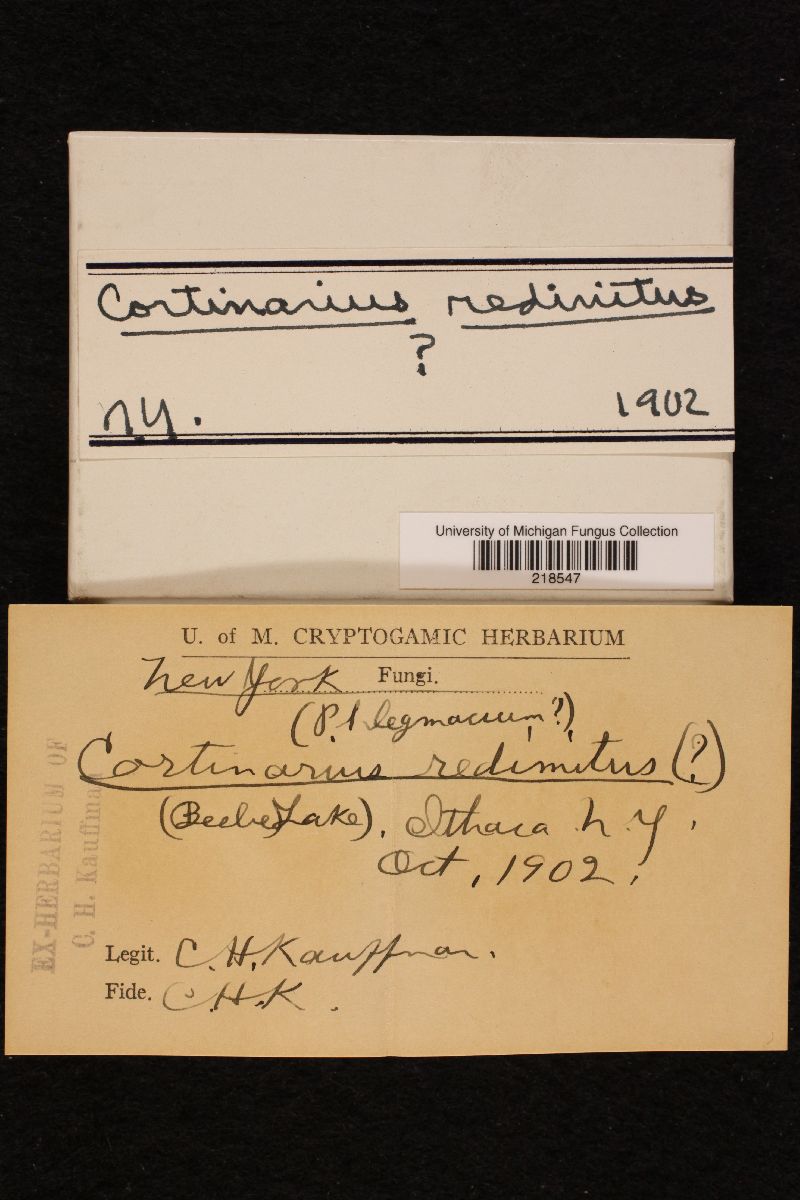 Cortinarius redinitus
?
n.y. 1902
University of Michigan Fungus Collection
218547
U. of M. CRYPTOGAMIC HERBARIUM
New York Fungi.
(Phlegmacium?)
Cortinarius redimitus (?)
(Beebe Lake), Ithaca N.Y.
Oct, 1902.
EX-HERBARIUM OF
C. H. Kauffman
Legit. C. H. Kauffman.
Fide. C.H.K.